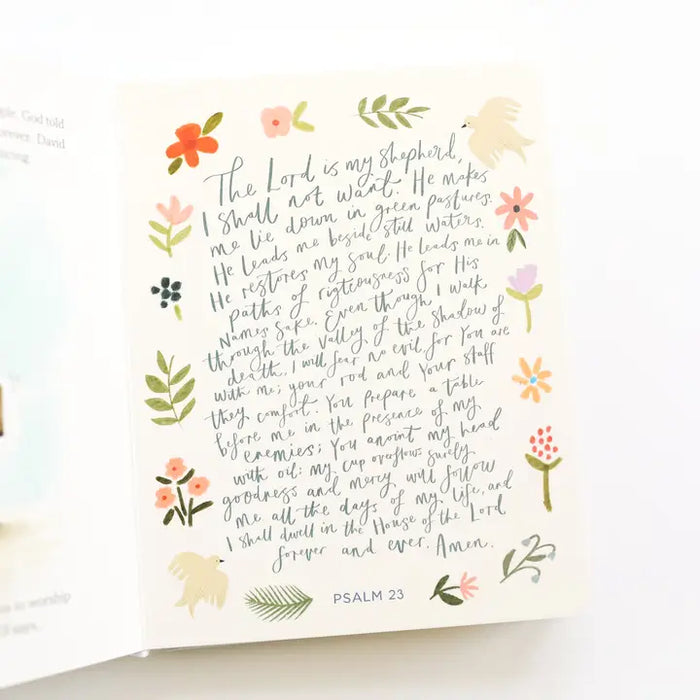 ple. God told
orever. David
The Lord is my shepherd,
I shall not want. He makes
me lie down in green pastures.
He leads me beside still waters.
He restores my soul. He leads me in
paths of rigtеousness for His
Names Sake. Even though I walk
through the valley of the shadow of
death, I will fear no evil for You are
with me; your rod and your staff
they comfort. You prepare a table
before me in the presence of my
enemies; You anoint my head
with oil: my cup overflows surely
goodness and mercy will follow
me all the days of my life, and
I shall dwell in the House of the Lord
forever and ever. Amen.
PSALM 23
to worship
says...